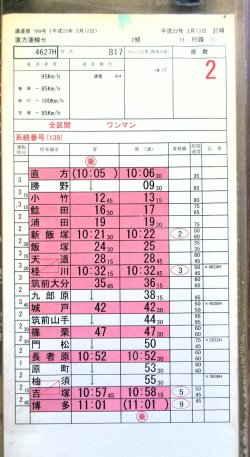 通達第 789号 (平成22年 2月12日) 平成22年 3月13日 訂補
直方運輸セ 2組 11 行路
4627H 817 両数
最高速度 速度種別
95Km/h 通電 2
85Km/h
95Km/h
85Km/h
全区間 ワンマン
系統番号(139)
運転時分 停車場名 着 発(通) 着発線 制限速度 記事
乗
直方 (10:05) 10:06 30
勝野 ↓ 09 30
小竹 12 45 13 15
鯰田 16 30 17
浦田 19 19 30
新飯塚 10:21 30 10:22 2
飯塚 24 30 25
天道 28 15 28 45
桂川 10:32 15 10:32 45 3 ×4624H
筑前大分 35 45 36 15
九郎原 ↓ 38 15
城戸 42 42 30
筑前山手 ↓ 44 30
篠栗 47 47 30
門松 ↓ 50
長者原 10:52 10:52 30
原町 ↓ 53
柚須 ↓ 55 30
吉塚 10:57 45 10:58 15 5
博多 11:01 (11:01) 9
乗